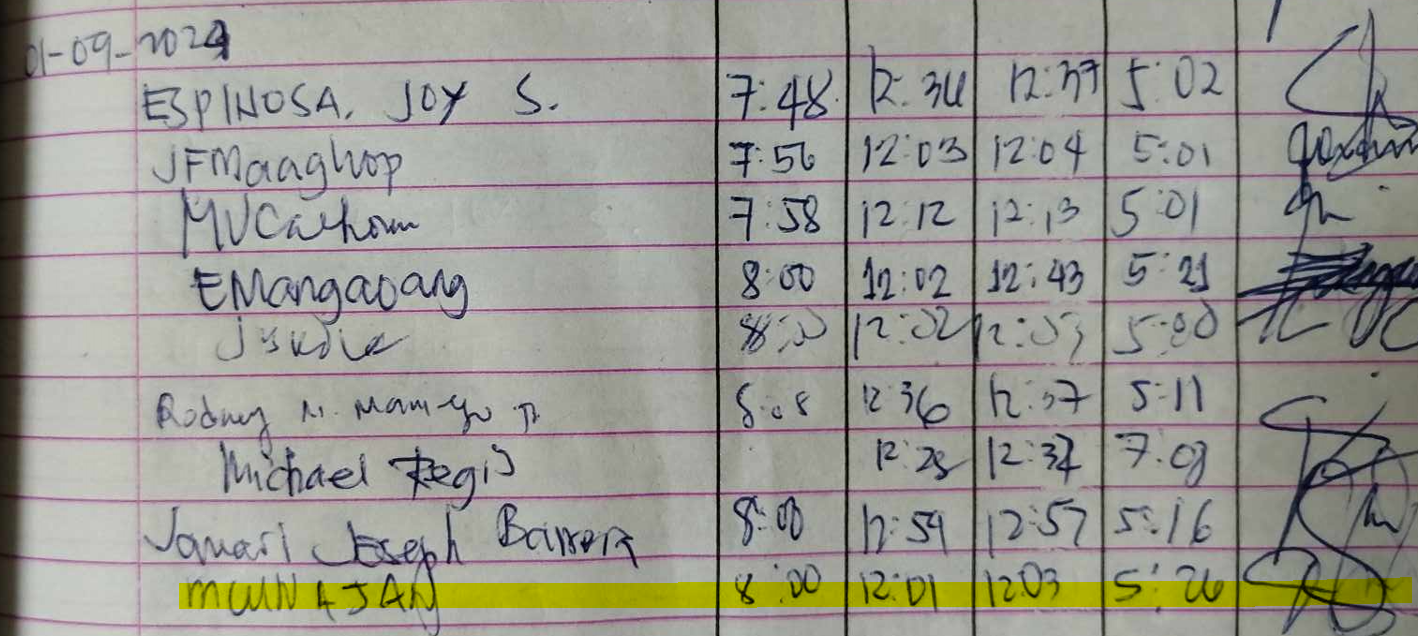 01-09-2024
ESPINOSA, JOY S. 7:48 12:36 12:37 5:02
JFMaaghop 7:56 12:03 12:04 5:01
MVCalhoun 7:58 12:12 12:13 5:01
EMangaoang 8:00 12:02 12:43 5:21
12:02 12:03 5:00
Rodney M. Jr. 8:08 12:36 12:37 5:11
Michael Regis 12:23 12:37 7:03
Januari Joseph Barrera 8:00 12:54 12:57 5:16
8:00 12:01 12:03 5:26